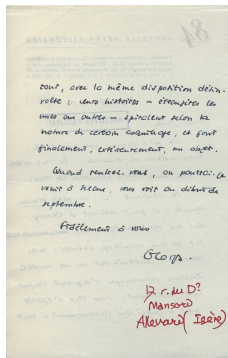 tout, avec la même disposition désin-
volte : leurs histoires — étrangères les
unes aux autres — spiralent selon la
nature de certain coquillage, et font
finalement, extérieurement, un objet.
Quand rentrez-vous, ou pourrai-je
venir à Sceaux, vous voir au début de
septembre.
Fidèlement à vous
Georges.
17 r. du Dr
Mansord
Allevard (Isère)